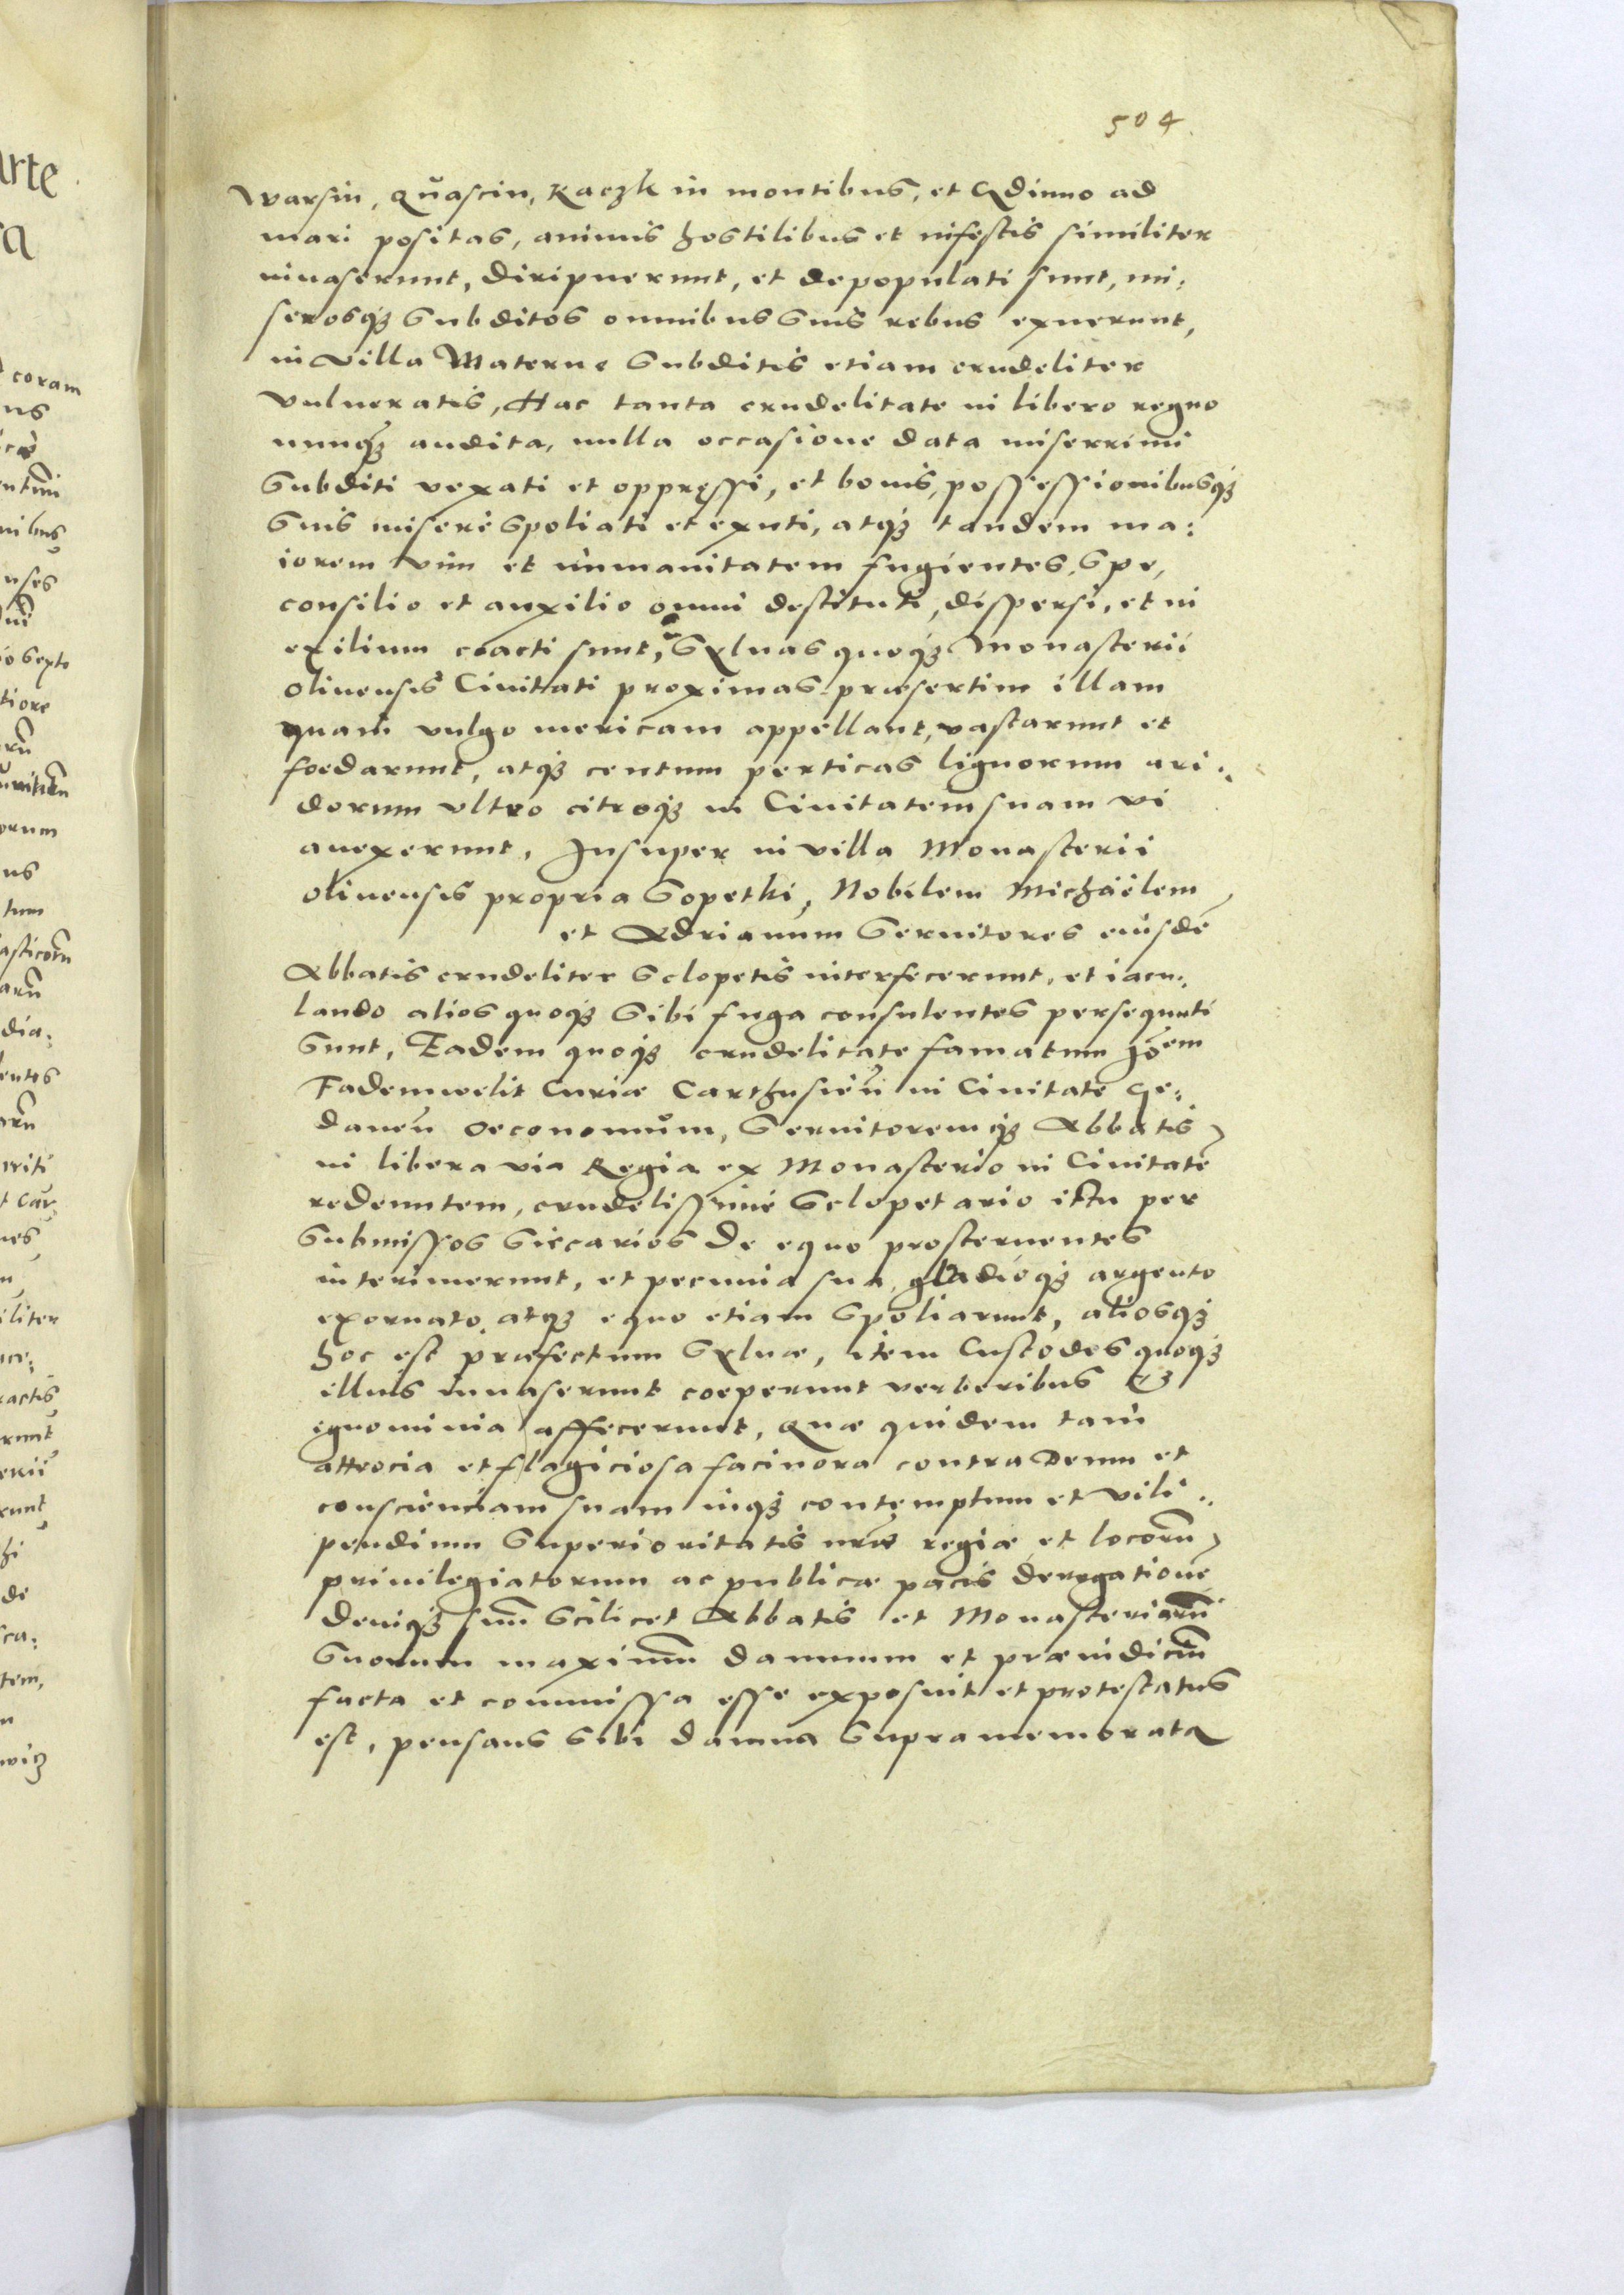 504
Warsin, Quascin, Kaczk in montibus, et Gdinno ad
mari positas, animis hostilibus et infestis similiter
inuaserunt, diripuerunt, et depopulati sunt, mi:
serosq3 subditos omnibus suis rebus exuerunt,
in villa Materne subditis etiam crudeliter
vulneratis, Hac tanta crudelitate in libero regno
nunq3 audita, nulla occasione data miserrimi
subditi vexati et oppressi, et bonis, possessionibusq3
suis miserè spoliati et exuti, atq3 tandem ma:
iorem vim et immanitatem fugientes, spe,
consilio et auxilio omni destituti, dispersi, et in
exilium coacti sunt, Syluas quoq3 Monasterii
Oliuensis Ciuitati proximas praesertim illam
quam vulgo mericam appellant, vastarunt et
foedarunt, atq3 centum perticas lignorum ari:
dorum vltro citroq3 in Ciuitatem suam vi
auexerunt, Insuper in villa Monasterii
Oliuensis propria Sopethi, Nobilem Michaëlem
et Adrianum Seruitores eiusdẽ
Abbatis crudeliter sclopetis interfecerunt, et iacu:
lando alios quoq3 sibi fuga consulentes persequuti
sunt, Eadem quoq3 crudelitate famatum Joẽm
Fademwelit Curiae Carthusieñ in Ciuitate Ge:
daneñ Oeconomum, Seruitoremq3 Abbatis
in libera via Regia ex Monasterio in Ciuitatẽ
redeuntem, crudelissimè sclopetario ictu per
submissos siccarios de equo prosternentes
interimerunt, et pecunia sua, gladioq3 argento
exornato, atq3 equo etiam spoliarunt, aliosq3
hoc est praefectum Syluae, item Custodes quoq3
illius inuaserunt coeperunt verberibus et
ignominia affecerunt, Quae quidem tam
attrocia et flagiciosa facinora contra Deum et
conscienciam suam inq3 contemptum et vili:
pendium Superioritatis nr̃ae regiae et locorũ
priuilegiatorum ac publicae pacis derogationẽ
deniq3 suũ scilicet Abbatis et Monasteriorũ
suorum maximũ damnum et praeiudiciũ
facta et commissa esse exposuit et protestatus
est, pensans sibi damna supramemorata